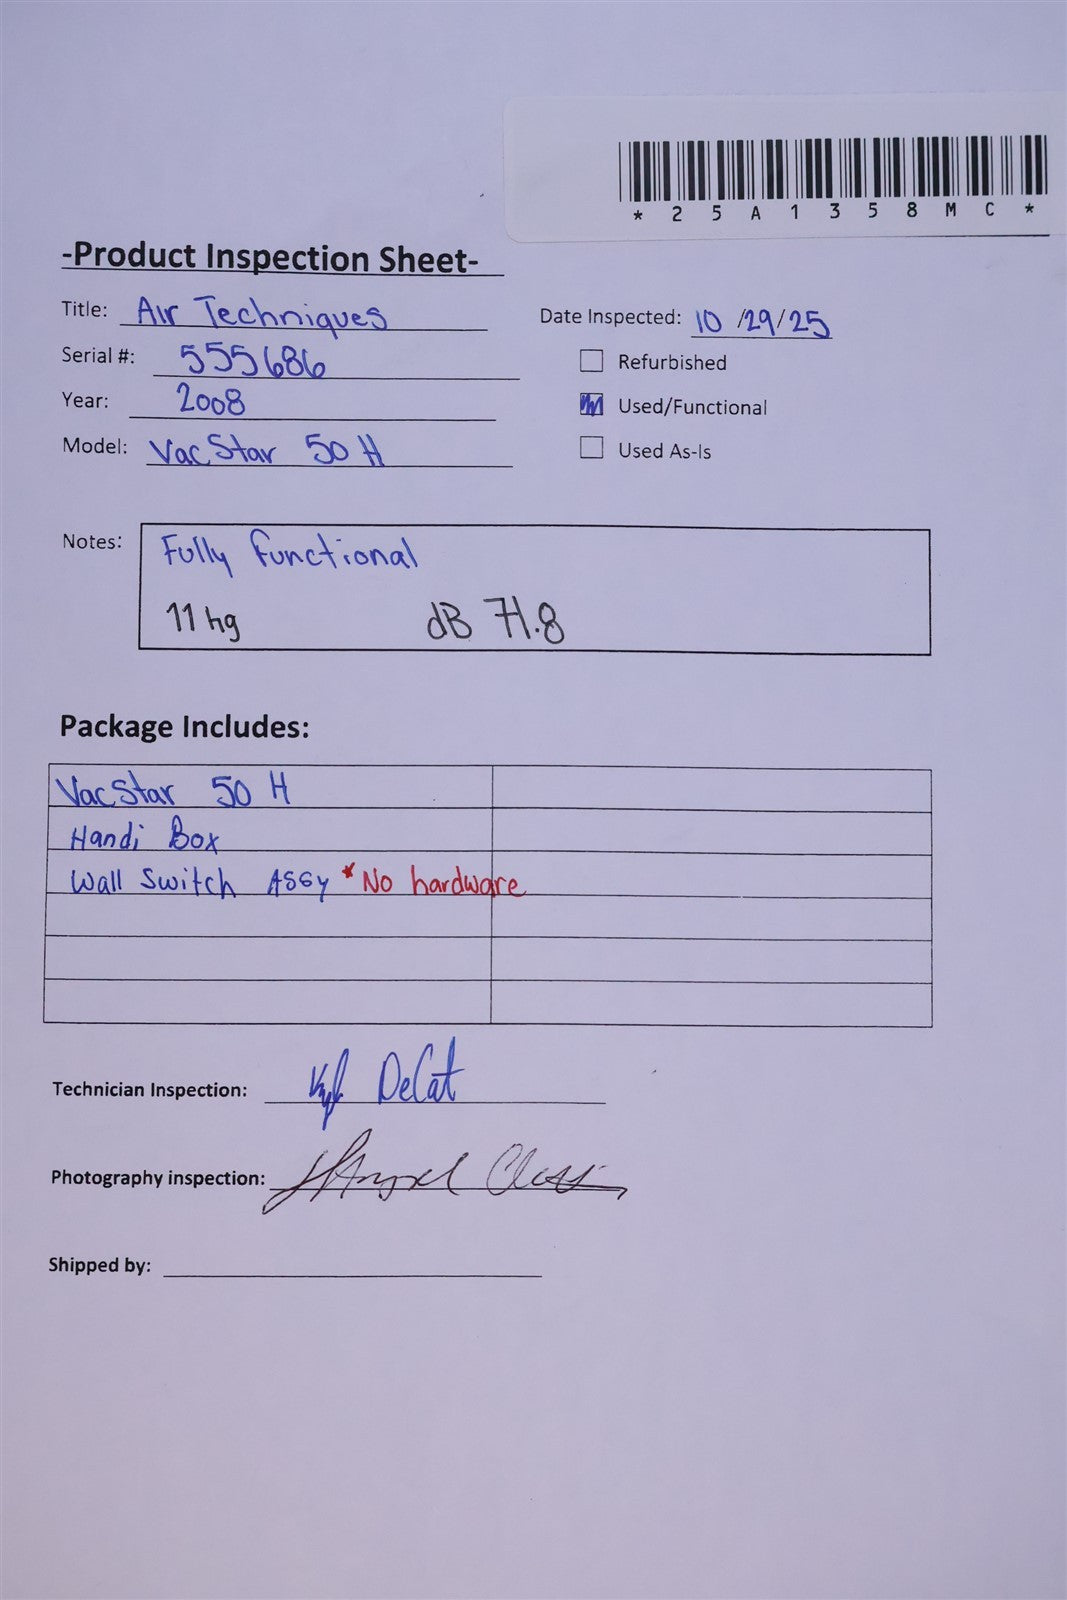 * 2 5 A 1 3 5 8 M C *
-Product Inspection Sheet-
Title: Air Techniques
Date Inspected: 10/29/25
Serial #: 555686
Refurbished
Year: 2008
Used/Functional
Model: VacStar 50 H
Used As-Is
Notes: Fully Functional
11 hg dB 71.8
Package Includes:
VacStar 50 H
Handi Box
Wall Switch ASSy *No hardware
Technician Inspection: DeCat
Photography inspection:
Shipped by: